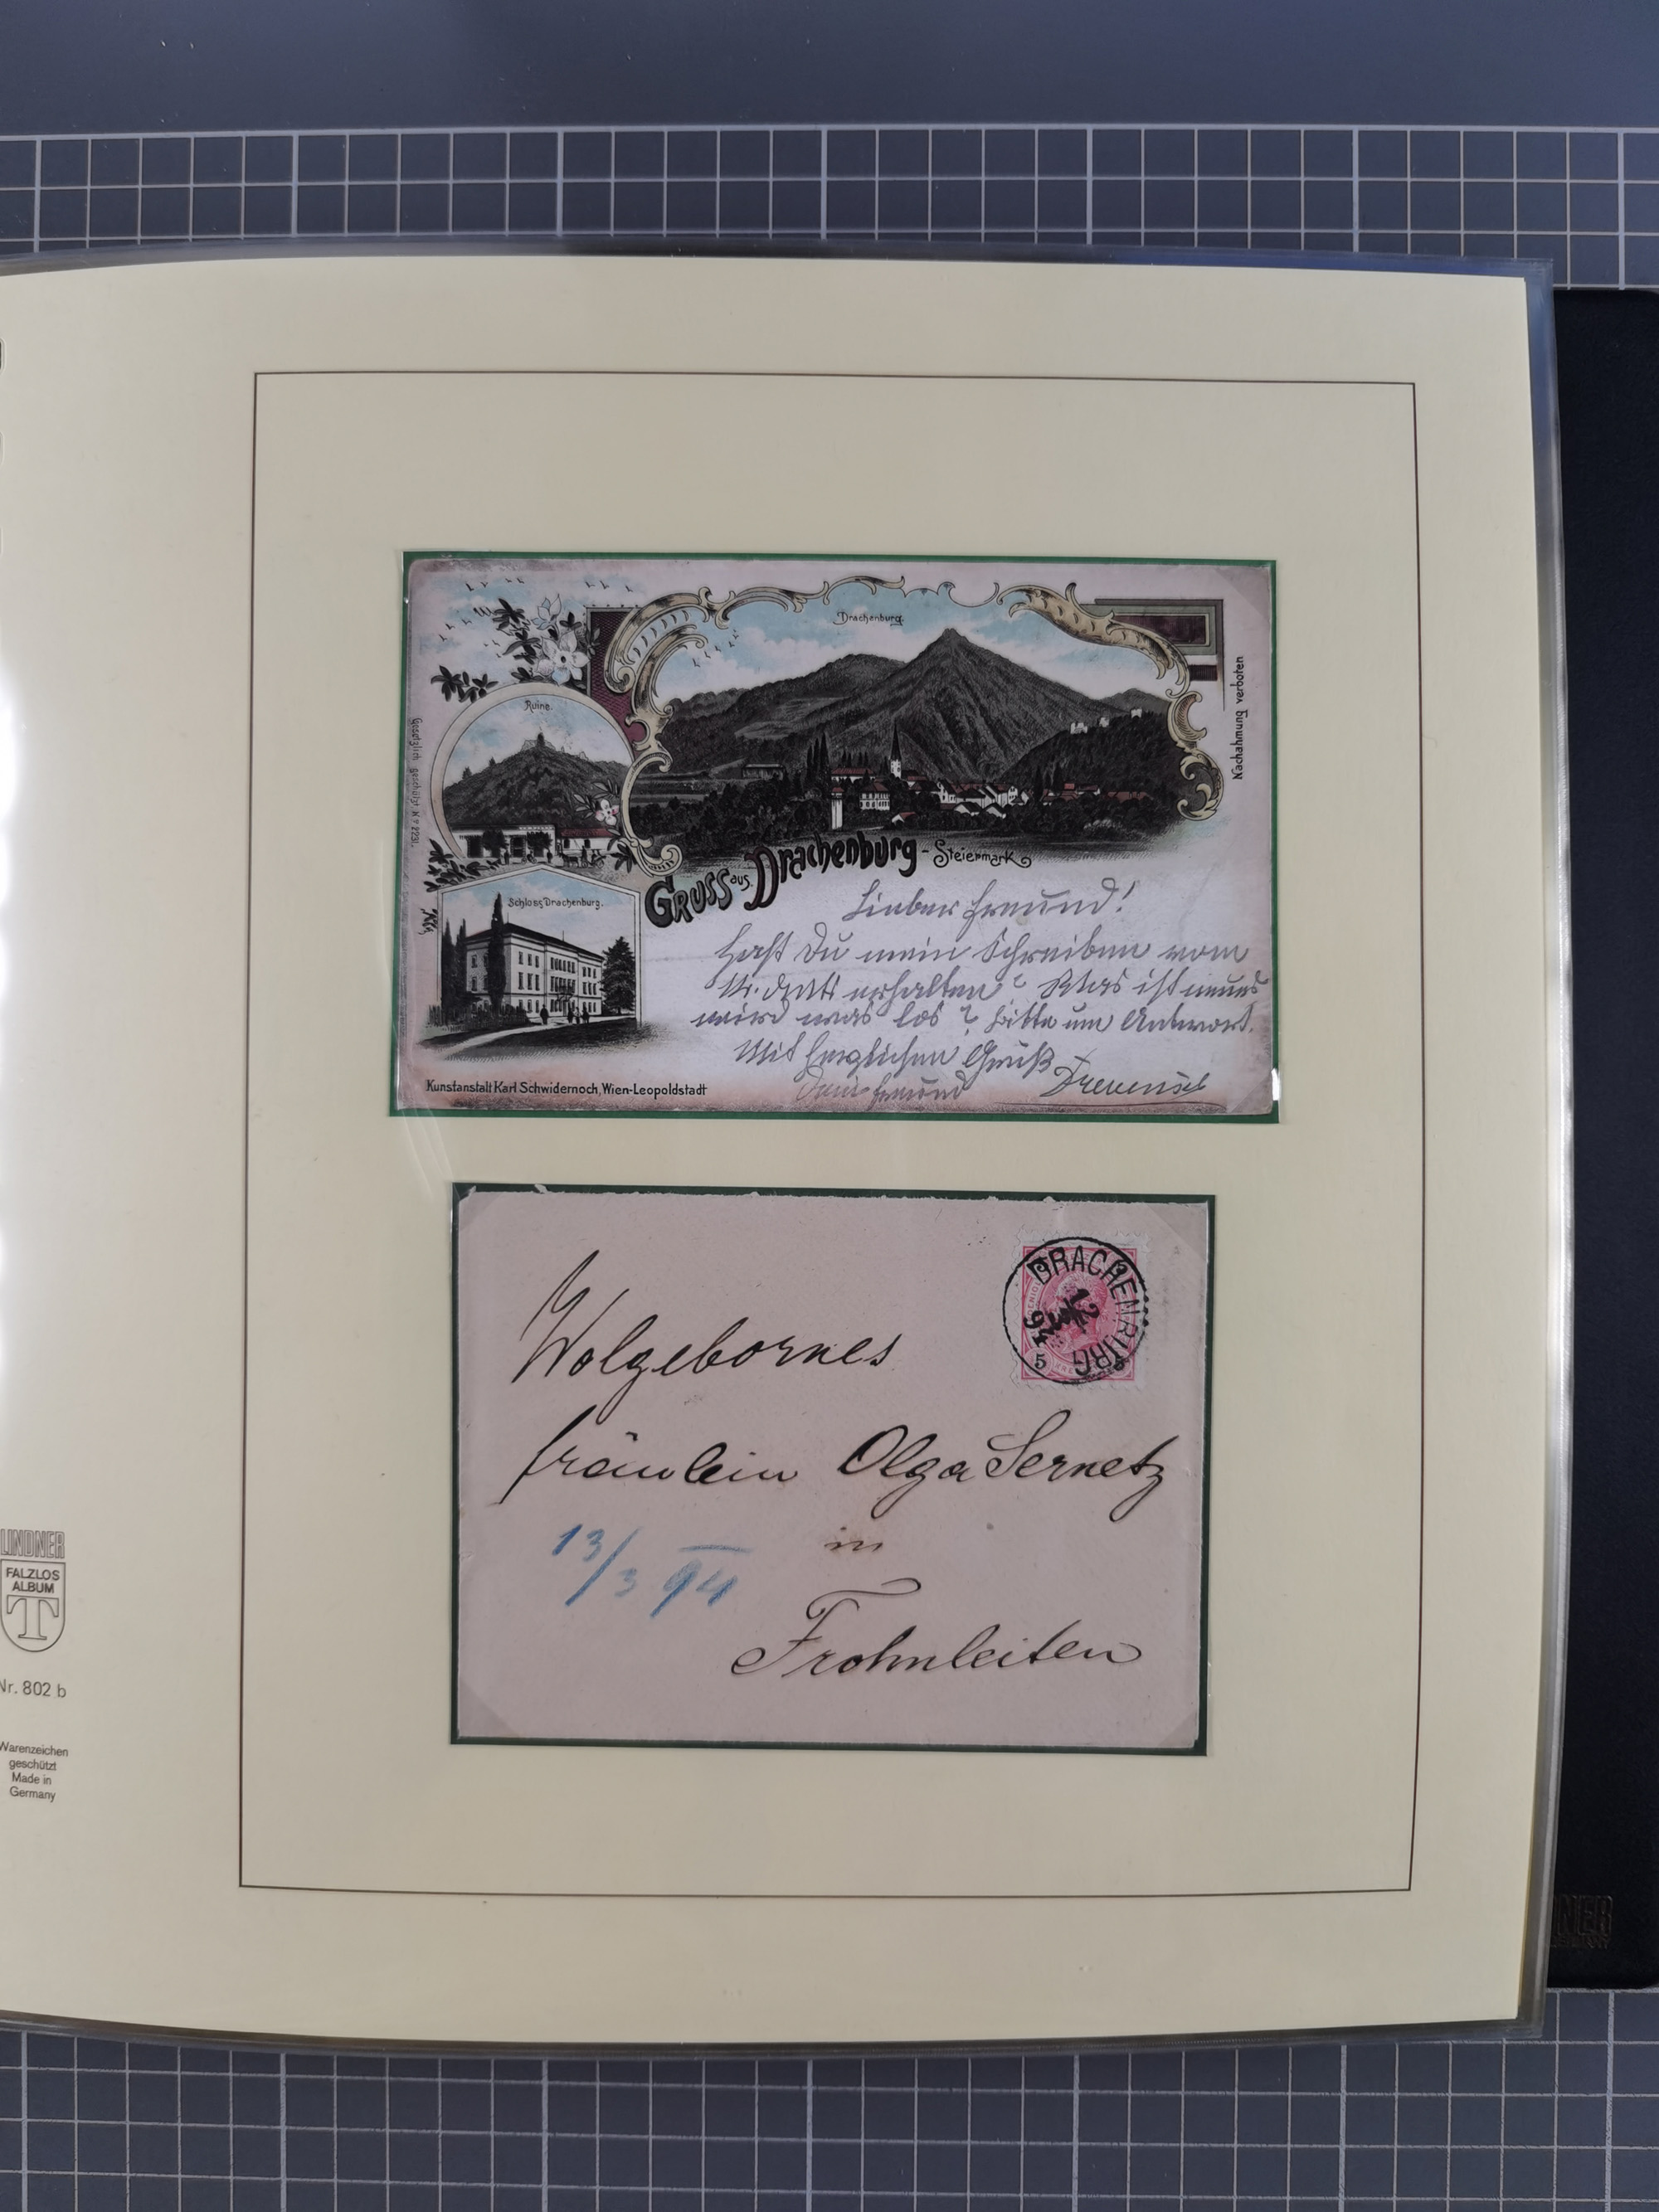 Drachenburg.
Ruine.
Gesetzlich geschützt No 2231.
Nachahmung verboten
GRUSS aus Drachenburg - Steiermark
Schloss Drachenburg.
Lieber Freund!
Hast Du mein Schreiben vom
erhalten? Was ist neues
wird was los? Bitte um Antwort.
Mit herzlichen Gruß
Dein Freund
Kunstanstalt Karl Schwidernoch, Wien-Leopoldstadt
DRACHENBURG
12
5 5
Wolgebornes
Fräulein Olga Sernetz
in
13/3 94
Frohnleiten
LINDNER
FALZLOS
ALBUM
T
Nr. 802 b
Warenzeichen
geschützt
Made in
Germany